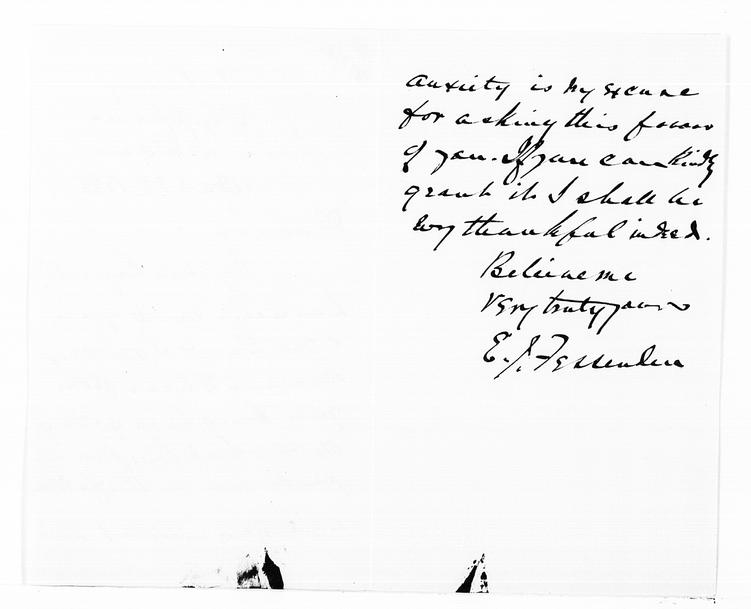 anxiety is my excuse
for asking this favor
of you. If you can kindly
grant it I shall be
very thankful indeed.
Believe me
Very truly yours
E. J. Fessenden